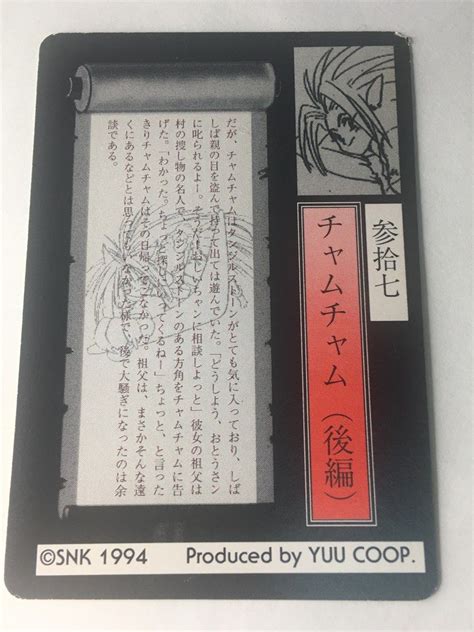 参拾七
チャムチャム（後編）
だが、チャムチャムはタンジルストーンがとても気に入っており、しば
しば親の目を盗んで持って出ては遊んでいた。「どうしよう、おとうさん
に叱られるよー。そうだ！おじいちゃんに相談しよっと」彼女の祖父は
村の捜し物の名人で、タンジルストーンのある方角をチャムチャムに告
げた。「わかった。ちょっと探しにいってくるねー」ちょっと、と言った
きりチャムチャムはその日帰ってこなかった。祖父は、まさかそんな遠
くにあるなどとは思ってもいなかった様で、後で大騒ぎになったのは余
談である。
©SNK 1994 Produced by YUU COOP.